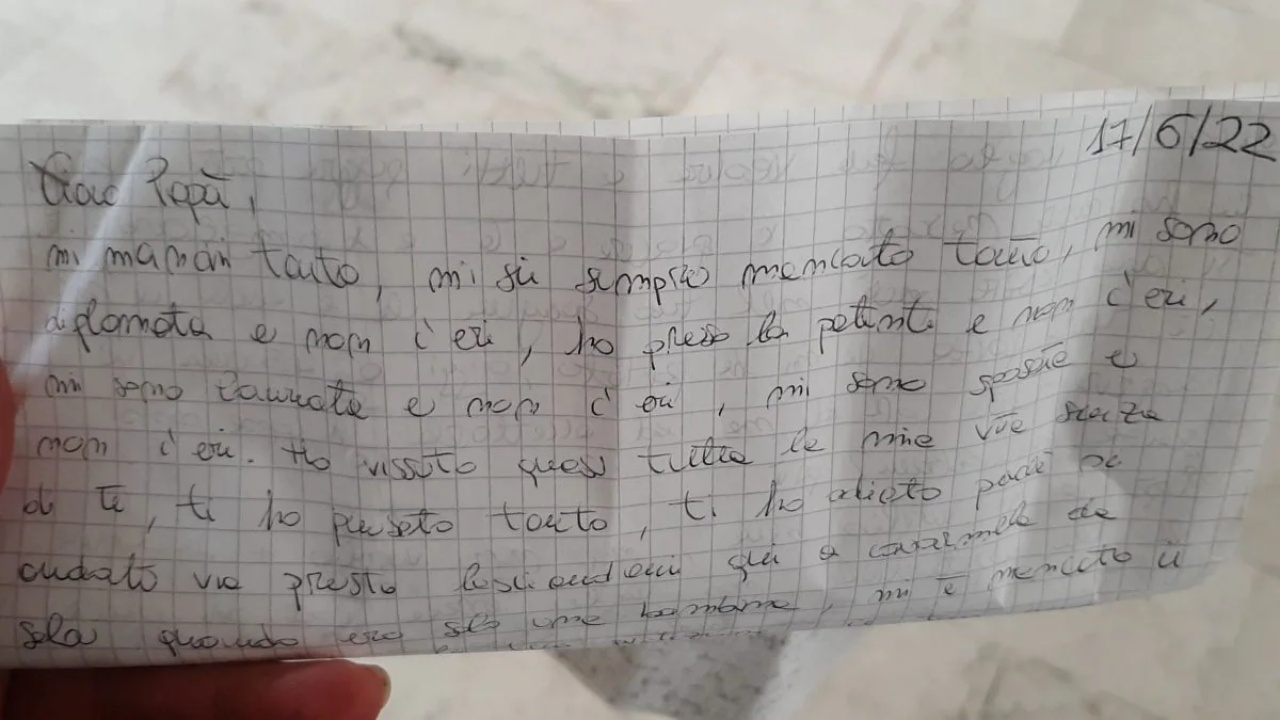 17/6/22
Ciao Papà,
mi manchi tanto, mi sei sempre mancato tanto, mi sono
diplomata e non c'eri, ho preso la patente e non c'eri,
mi sono laureata e non c'eri, mi sono sposata e
non c'eri. Ho vissuto quasi tutta la mia vita senza
di te, ti ho pensato tanto, ti ho odiato perché sei
andato via presto lasciandomi qui a camminare da
sola quando ero solo una bambina, mi è mancato il